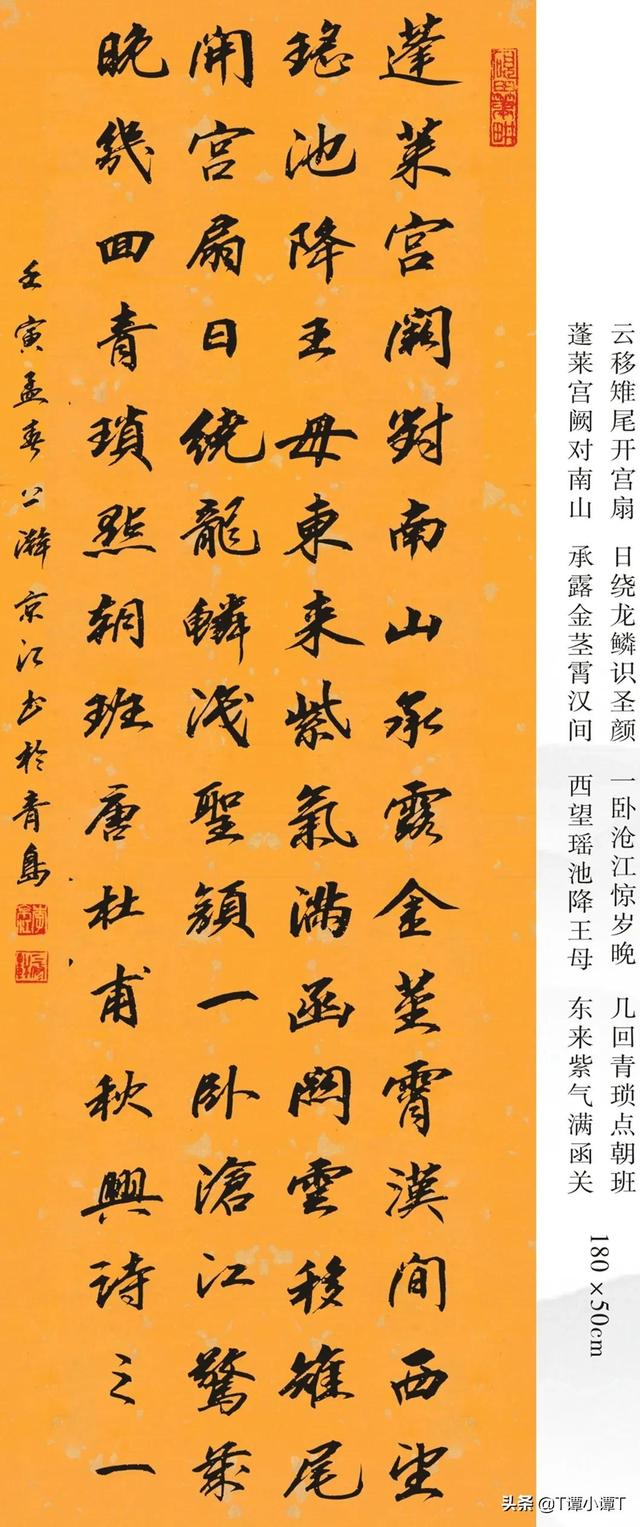 蓬莱宫闕對南山承露金莖霄漢間西望
瑶池降王母東来紫氣滿函関雲移雉尾
開宫扇日繞龍鱗識聖顔一卧滄江驚歲
晚幾回青瑣點朝班唐杜甫秋興詩之一
壬寅孟春公京江书於青島
蓬莱宫阙对南山 承露金茎霄汉间 西望瑶池降王母 东来紫气满函关
云移雉尾开宫扇 日绕龙鳞识圣颜 一卧沧江惊岁晚 几回青琐点朝班
180×50cm
头条 @T谭小谭T